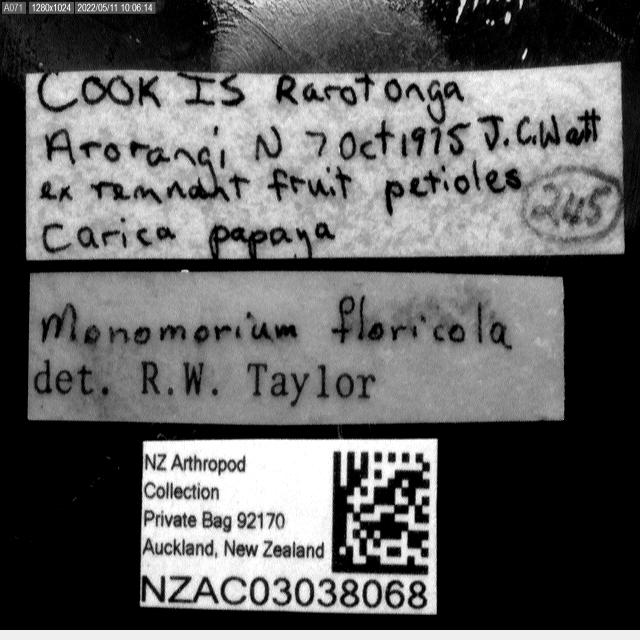 A071 1280x1024 2022/05/11 10:06:14
COOK IS Rarotonga
Arorangi N 7 Oct 1975 J.C. Watt
ex remnant fruit petioles
245
Carica papaya
Monomorium floricola
det. R.W. Taylor
NZ Arthropod
Collection
Private Bag 92170
Auckland, New Zealand
NZAC03038068